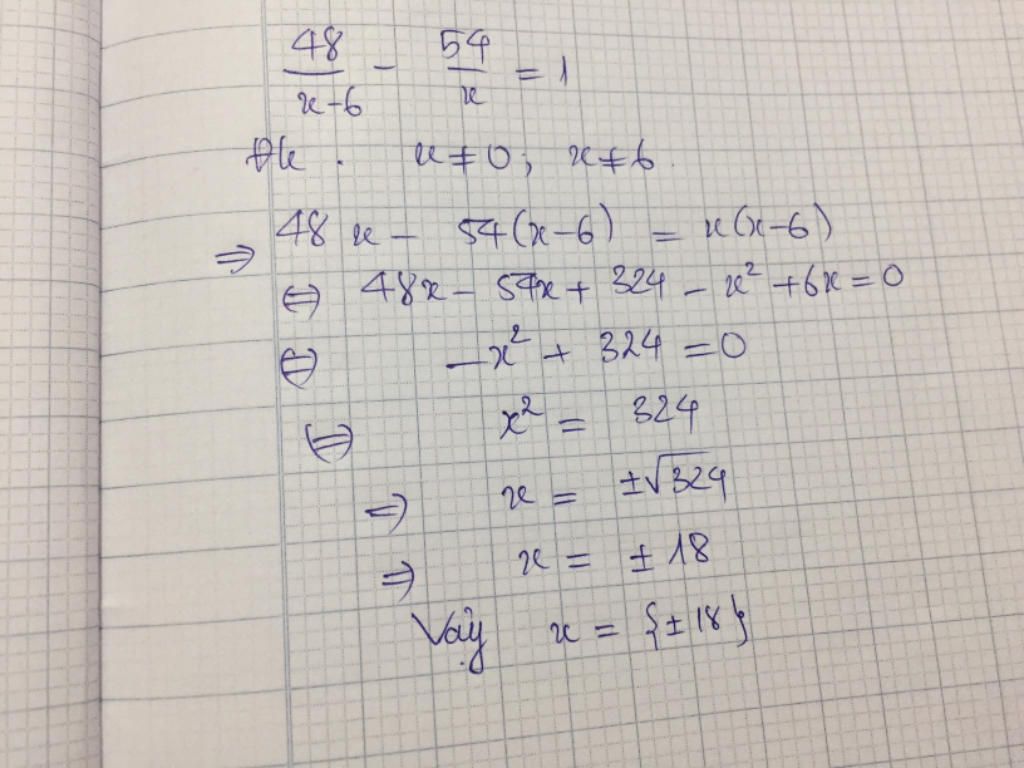 48/(x-6) - 54/x = 1
Đk . x ≠ 0; x ≠ 6.
⇒ 48x - 54(x-6) = x(x-6)
⇔ 48x - 54x + 324 - x² + 6x = 0
⇔ -x² + 324 = 0
⇔ x² = 324
⇒ x = ±√324
⇒ x = ± 18
Vậy x = {±18}